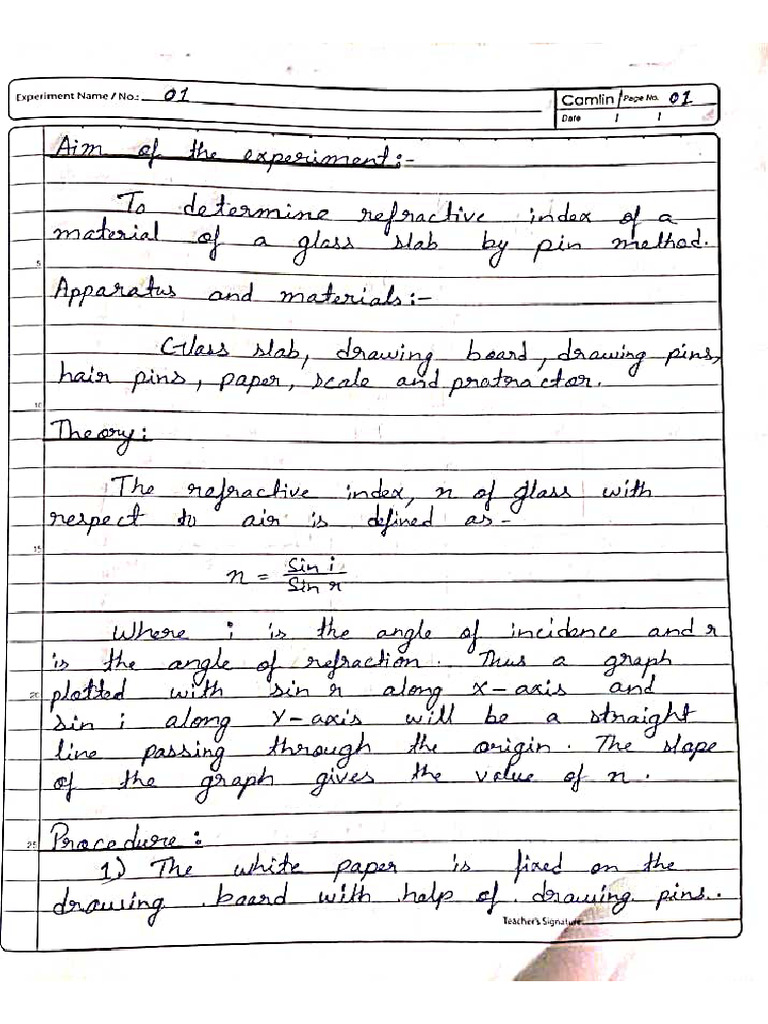 Experiment Name / No.: 01
Camlin Page No. 01
Date / /
Aim of the experiment:-
To determine refractive index of a
material of a glass slab by pin method.
5
Apparatus and materials:-
Glass slab, drawing board, drawing pins,
hair pins, paper, scale and protractor.
10
Theory:
The refractive index, n of glass with
respect to air is defined as-
15
n = Sin i / Sin r
Where i is the angle of incidence and r
is the angle of refraction. Thus a graph
20 plotted with sin r along X-axis and
sin i along Y-axis will be a straight
line passing through the origin. The slope
of the graph gives the value of n.
25 Procedure:
1) The white paper is fixed on the
drawing board with help of drawing pins.
Teacher's Signature